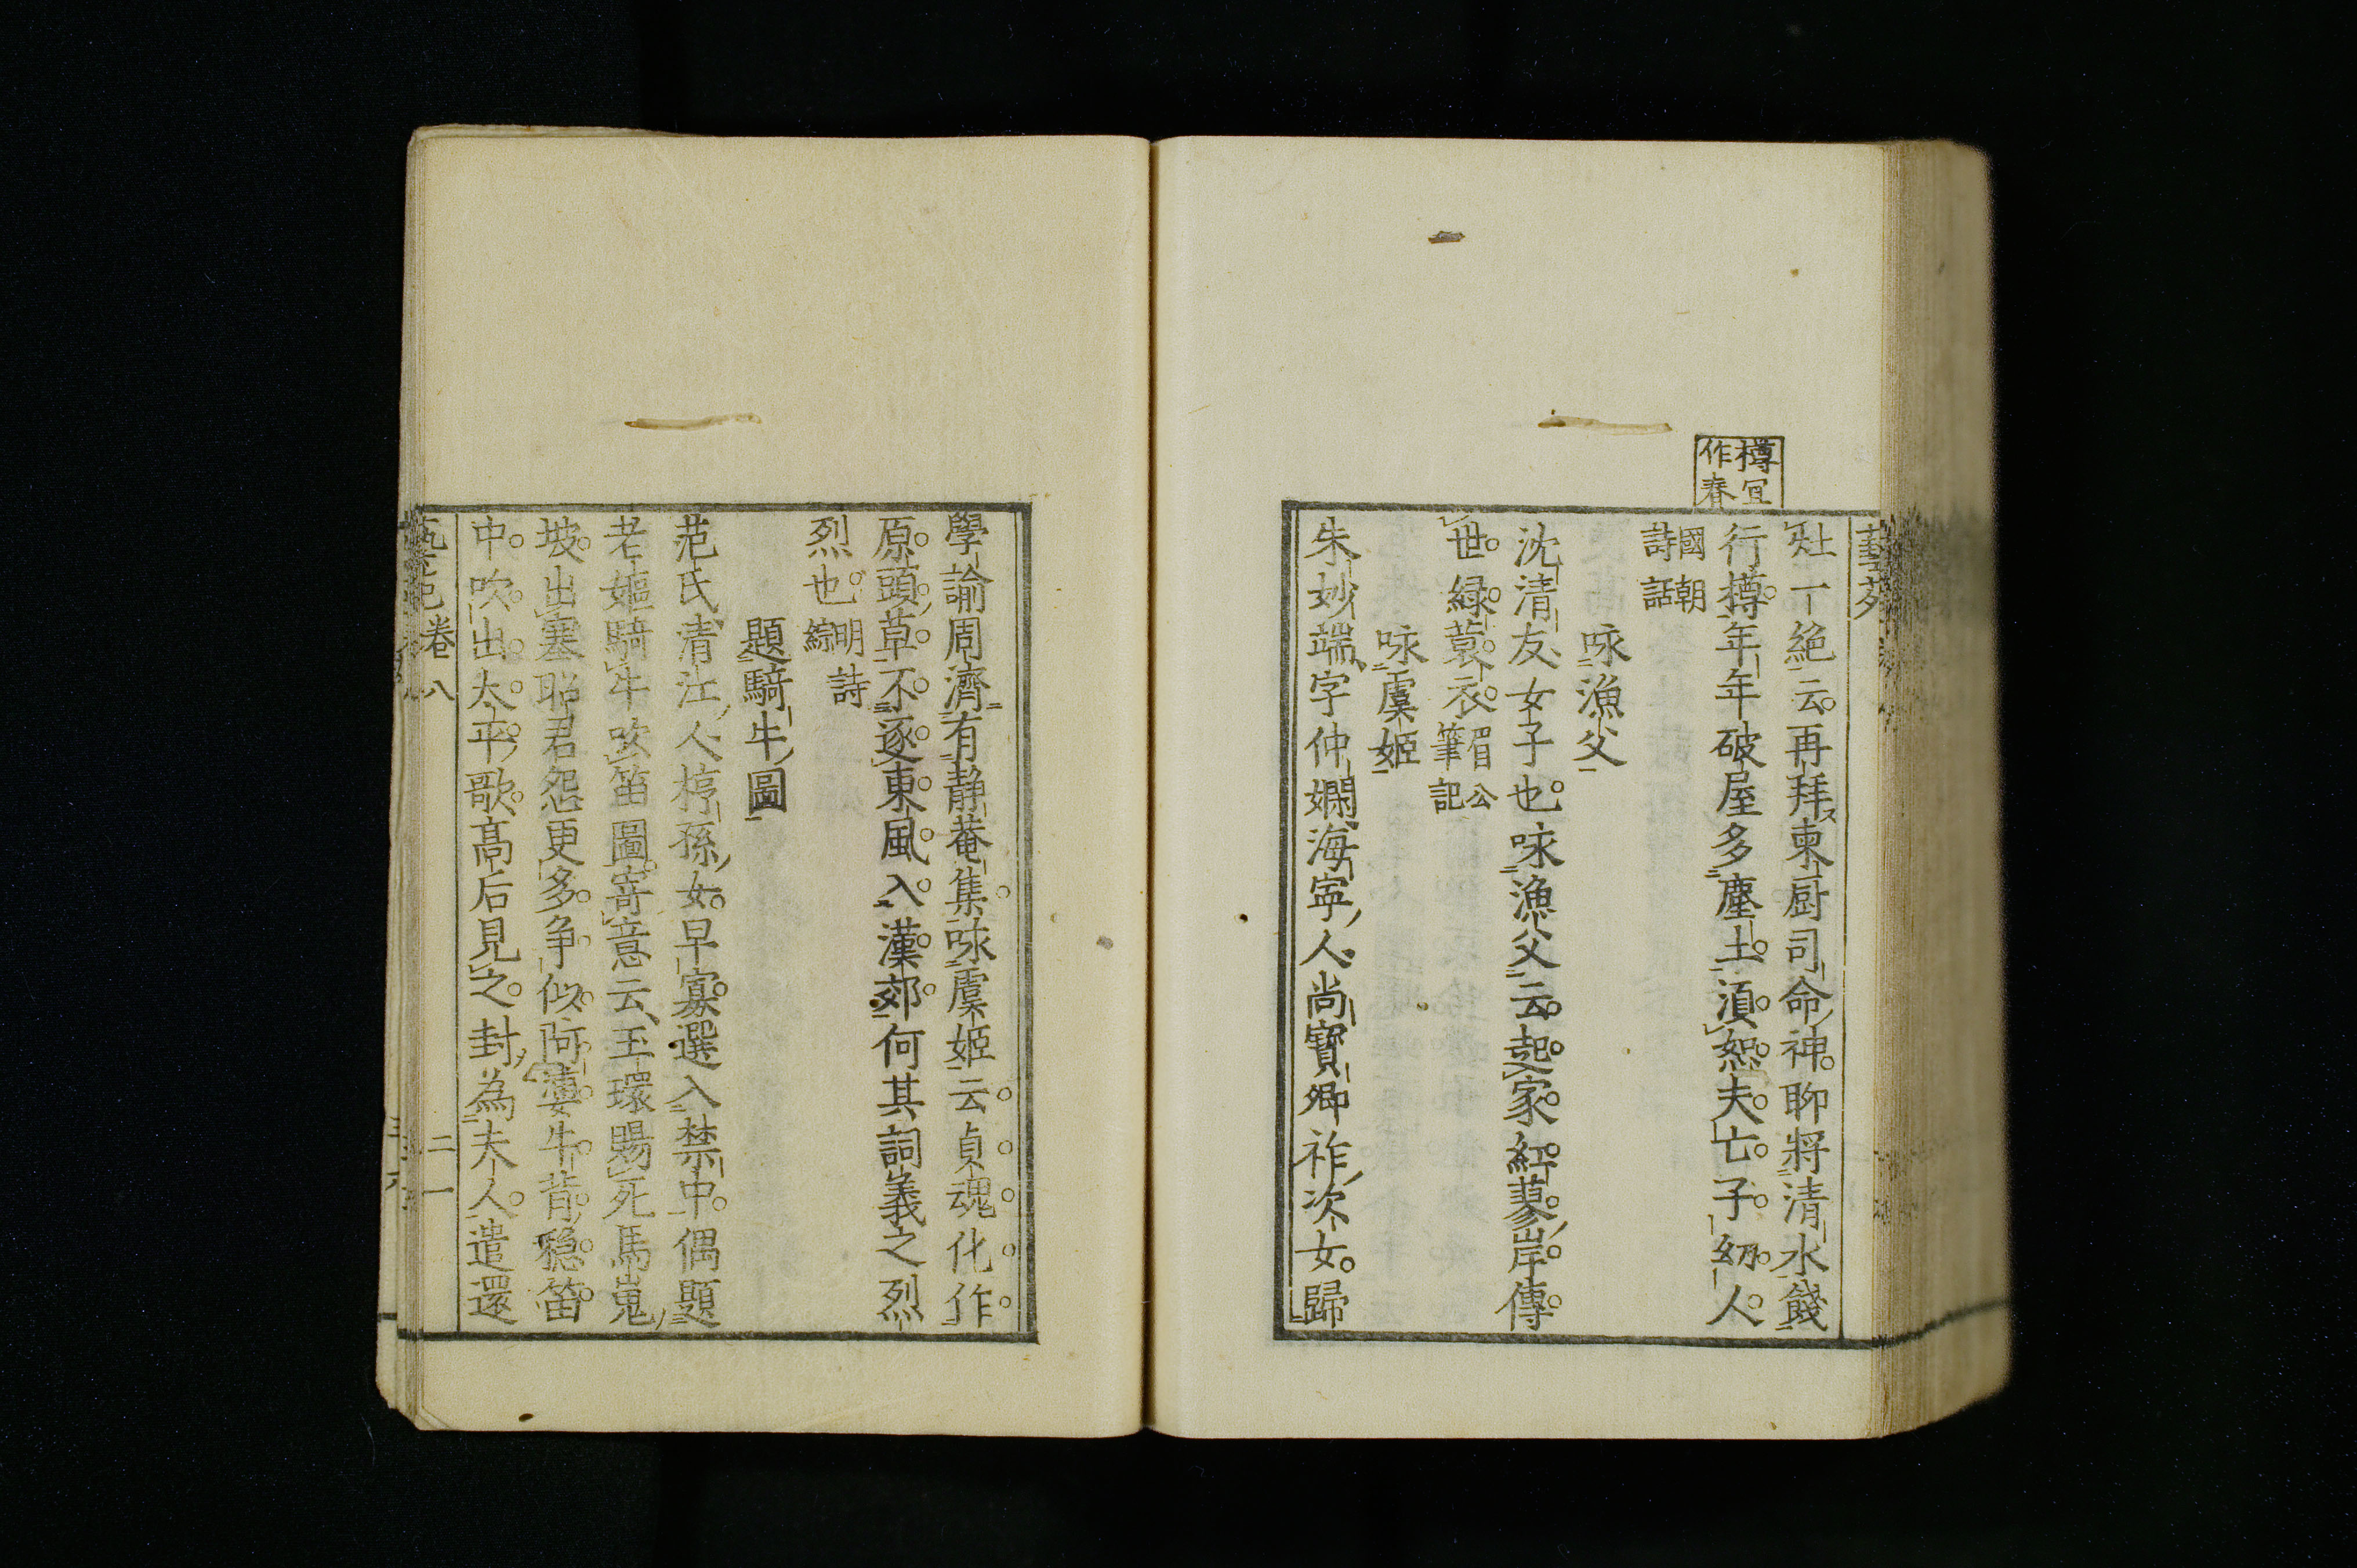 樽宜
作春
藝苑
灶一絶云再拜東厨司命神聊將清水餞
行樽年年破屋多塵土湏恕夫亡子㓜人
國朝
詩話
咏漁父
沈清友女子也咏漁父云起家紅蓼岸傳
世緑蓑衣眉公
筆記
咏虞姬
朱妙端字仲嫻海寧人尚寶卿祚次女歸
學諭周濟有静菴集咏虞姬云貞魂化作
原頭草不逐東風入漢郊何其詞義之烈
烈也明詩
綜
題騎牛圖
范氏清江人梈孫女早寡選入禁中偶題
老嫗騎牛吹笛圖寄意云玉環賜死馬嵬
坡出塞昭君怨更多争似阿婆牛背穏笛
中吹出太平歌高后見之封為夫人遣還
卷八
二一